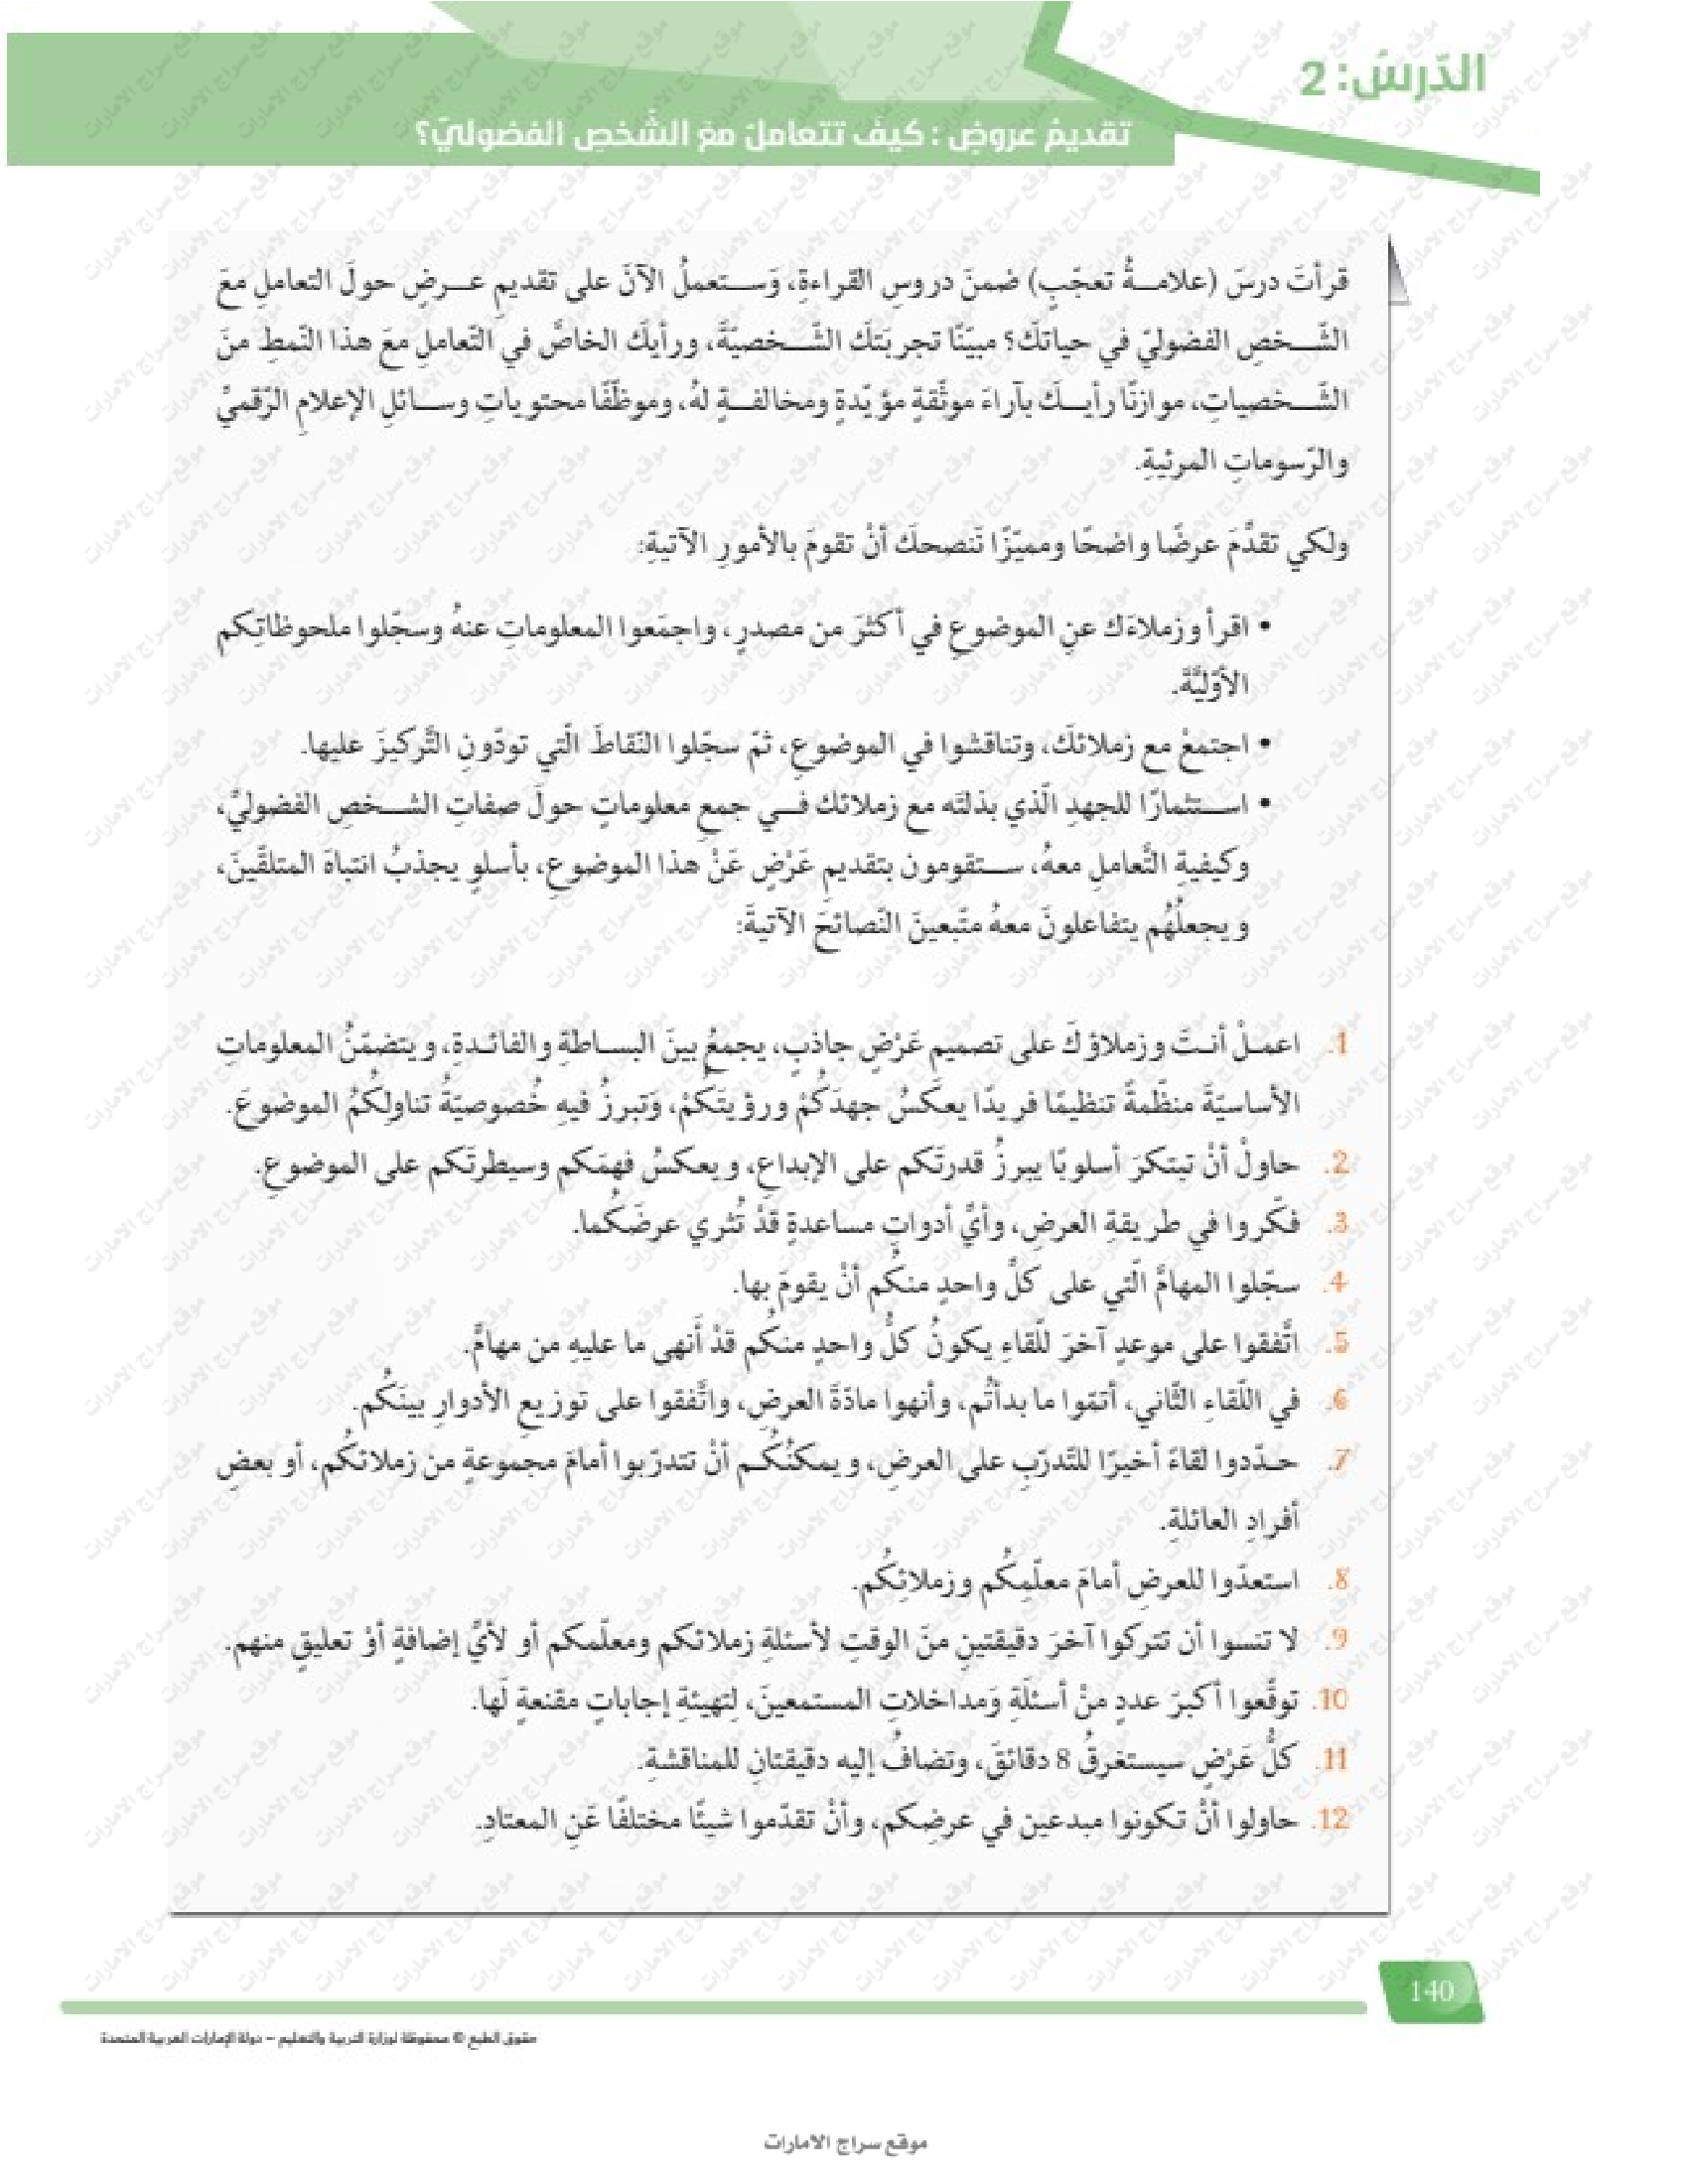 الدّرسُ: 2
تقديمُ عروضٍ : كيفَ تتعاملُ معَ الشّخصِ الفضوليّ؟
قرأتَ درسَ (علامـــةُ تعجّبٍ) ضمنَ دروسِ القراءةِ، وَســـتعملُ الآنَ على تقديمِ عـــرضٍ حولَ التعاملِ معَ
الشّـــخصِ الفضوليّ في حياتكَ؟ مبيّنًا تجربَتكَ الشّـــخصيّةَ، ورأيكَ الخاصَّ في التّعاملِ معَ هذا النّمطِ منَ
الشّـــخصياتِ، موازنًا رأيـــكَ بآراءَ موثّقةٍ مؤيّدةٍ ومخالفـــةٍ لهُ، وموظّفًا محتوياتِ وســـائلِ الإعلامِ الرّقميِّ
والرّسوماتِ المرئيةِ.
ولكي تقدّمَ عرضًا واضحًا ومميّزًا نَنصحكَ أنْ تقومَ بالأمورِ الآتيةِ:
• اقرأ وزملاءَك عنِ الموضوعِ في أكثرَ من مصدرٍ، واجمَعوا المعلوماتِ عنهُ وسجّلوا ملحوظاتِكم
الأوّليَّةَ.
• اجتمعْ مع زملائكَ، وتناقشوا في الموضوعِ، ثمّ سجّلوا النّقاطَ الّتي تودّونِ التَّركيزَ عليها.
• اســـتثمارًا للجهدِ الّذي بذلتَه مع زملائك فـــي جمعِ معلوماتٍ حولَ صفاتِ الشـــخصِ الفضوليِّ،
وكيفيةِ التَّعاملِ معهُ، ســـتقومون بتقديمِ عَرْضٍ عَنْ هذا الموضوعِ، بأسلوِ يجذبُ انتباهَ المتلقّينَ،
ويجعلُهُم يتفاعلونَ معهُ متّبعينَ النّصائحَ الآتيةَ:
1. اعمـلْ أنـتَ وزملاؤكَ على تصميمِ عَرْضٍ جاذبٍ، يجمعُ بينَ البسـاطةِ والفائـدةِ، ويتضمّنُ المعلوماتِ
الأساسيّةَ منظّمةً تنظيمًا فريدًا يعكسُ جهدَكُمْ ورؤيتَكُمْ، وَتبرزُ فيهِ خُصوصيّةُ تناولِكُمُ الموضوعَ.
2. حاولْ أنْ تبتكرَ أسلوبًا يبرزُ قدرتَكم على الإبداعِ، ويعكسُ فهمَكم وسيطرتَكم على الموضوعِ.
3. فكّروا في طريقةِ العرضِ، وأيِّ أدواتٍ مساعدةٍ قدْ تُثري عرضَكُما.
4. سجّلوا المهامَّ الّتي على كلِّ واحدٍ منكُم أنْ يقومَ بها.
5. اتّفقوا على موعدٍ آخرَ للّقاءِ يكونُ كلُّ واحدٍ منكُم قدْ أنهى ما عليهِ من مهامَّ.
6. في اللّقاءِ الثّاني، أتمّوا ما بدأتُم، وأنهوا مادّةَ العرضِ، واتّفقوا على توزيعِ الأدوارِ بينَكُم.
7. حـدّدوا لقاءً أخيرًا للتّدرّبِ على العرضِ، ويمكنُكُـم أنْ تتدرّبوا أمامَ مجموعةٍ من زملائكُم، أو بعضِ
أفرادِ العائلةِ.
8. استعدّوا للعرضِ أمامَ معلّمِكُم وزملائِكُم.
9. لا تنسوا أن تتركوا آخرَ دقيقتينِ منَ الوقتِ لأسئلةِ زملائكم ومعلّمكم أو لأيِّ إضافةٍ أوْ تعليقٍ منهم.
10. توقّعوا أكبرَ عددٍ منْ أسئلَةِ وَمداخلاتِ المستمعينَ، لِتهيئةِ إجاباتٍ مقنعةٍ لَها.
11. كلُّ عَرْضٍ سيستغرقُ 8 دقائقَ، وتضافُ إليه دقيقتانِ للمناقشةِ.
12. حاولوا أنْ تكونوا مبدعين في عرضِكم، وأنْ تقدّموا شيئًا مختلفًا عَنِ المعتادِ.
140
حقوق الطبع © محفوظة لوزارة التربية والتعليم – دولة الإمارات العربية المتحدة
موقع سراج الامارات